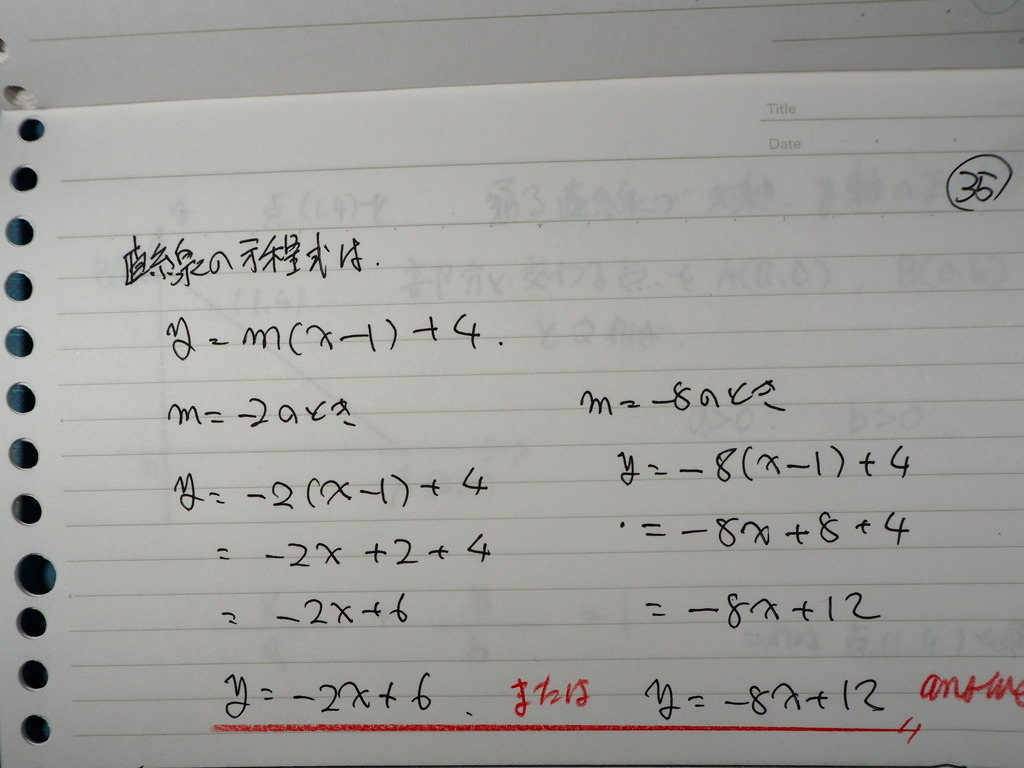 Title
Date
35
直線の方程式は.
y = m(x-1)+4.
m=-2のとき
y= -2(x-1)+4
= -2x+2+4
= -2x+6
m=-8のとき
y=-8(x-1)+4
=-8x+8+4
=-8x+12
y=-2x+6. または y=-8x+12 answe